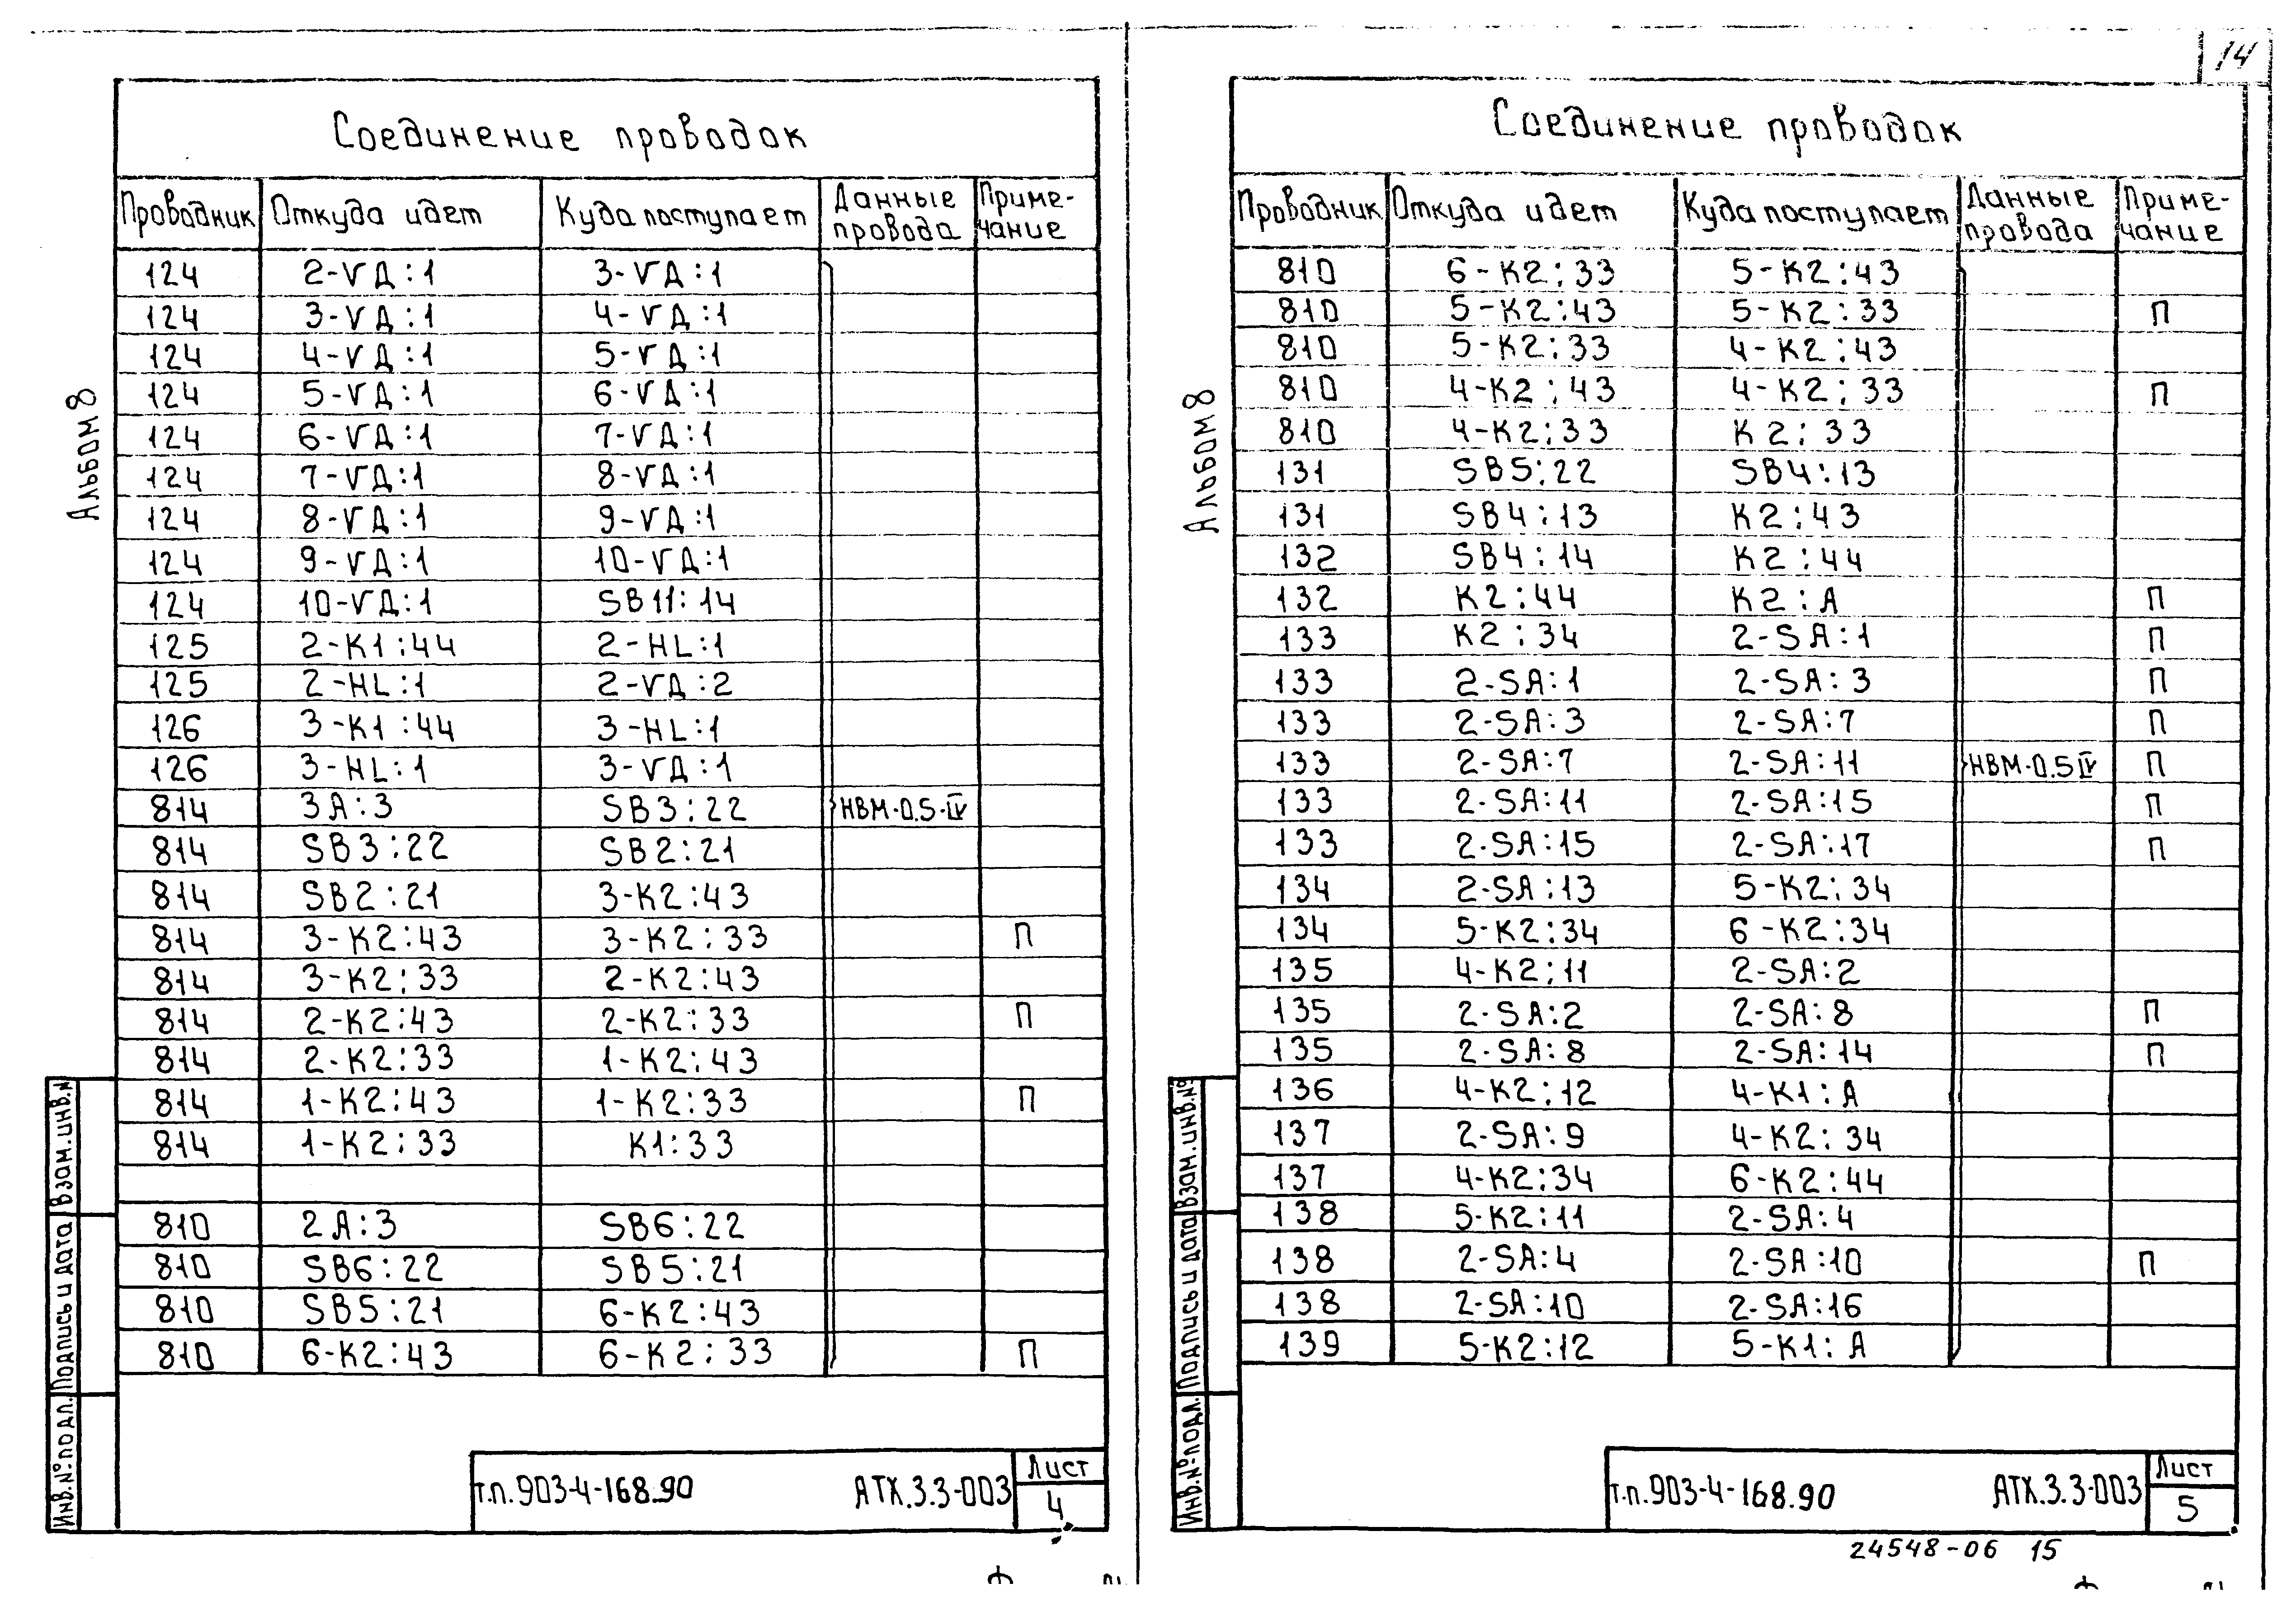 14
Альбом 8
Соединение проводок
Проводник Откуда идет Куда поступает Данные провода Приме-чание
124 2-VД:1 3-VД:1
124 3-VД:1 4-VД:1
124 4-VД:1 5-VД:1
124 5-VД:1 6-VД:1
124 6-VД:1 7-VД:1
124 7-VД:1 8-VД:1
124 8-VД:1 9-VД:1
124 9-VД:1 10-VД:1
124 10-VД:1 SB11:14
125 2-К1:44 2-HL:1
125 2-HL:1 2-VД:2
126 3-К1:44 3-HL:1
126 3-HL:1 3-VД:1
814 3А:3 SB3:22 НВМ-0.5-IV
814 SB3:22 SB2:21
814 SB2:21 3-К2:43
814 3-К2:43 3-К2:33 П
814 3-К2:33 2-К2:43
814 2-К2:43 2-К2:33 П
814 2-К2:33 1-К2:43
814 1-К2:43 1-К2:33 П
814 1-К2:33 К1:33
810 2А:3 SB6:22
810 SB6:22 SB5:21
810 SB5:21 6-К2:43
810 6-К2:43 6-К2:33 П
Инв.№подл. Подпись и дата Взам.инв.№
т.п.903-4-168.90 АТХ.3.3-003 Лист
4
Альбом 8
Соединение проводок
Проводник Откуда идет Куда поступает Данные провода Приме-чание
810 6-К2:33 5-К2:43
810 5-К2:43 5-К2:33 П
810 5-К2:33 4-К2:43
810 4-К2:43 4-К2:33 П
810 4-К2:33 К2:33
131 SB5:22 SB4:13
131 SB4:13 К2:43
132 SB4:14 К2:44
132 К2:44 К2:А П
133 К2:34 2-SA:1 П
133 2-SA:1 2-SA:3 П
133 2-SA:3 2-SA:7 П
133 2-SA:7 2-SA:11 НВМ-0.5 IV П
133 2-SA:11 2-SA:15 П
133 2-SA:15 2-SA:17 П
134 2-SA:13 5-К2:34
134 5-К2:34 6-К2:34
135 4-К2:11 2-SA:2
135 2-SA:2 2-SA:8 П
135 2-SA:8 2-SA:14 П
136 4-К2:12 4-К1:А
137 2-SA:9 4-К2:34
137 4-К2:34 6-К2:44
138 5-К2:11 2-SA:4
138 2-SA:4 2-SA:10 П
138 2-SA:10 2-SA:16
139 5-К2:12 5-К1:А
Инв.№подл. Подпись и дата Взам.инв.№
т.п.903-4-168.90 АТХ.3.3-003 Лист
5
24548-06 15